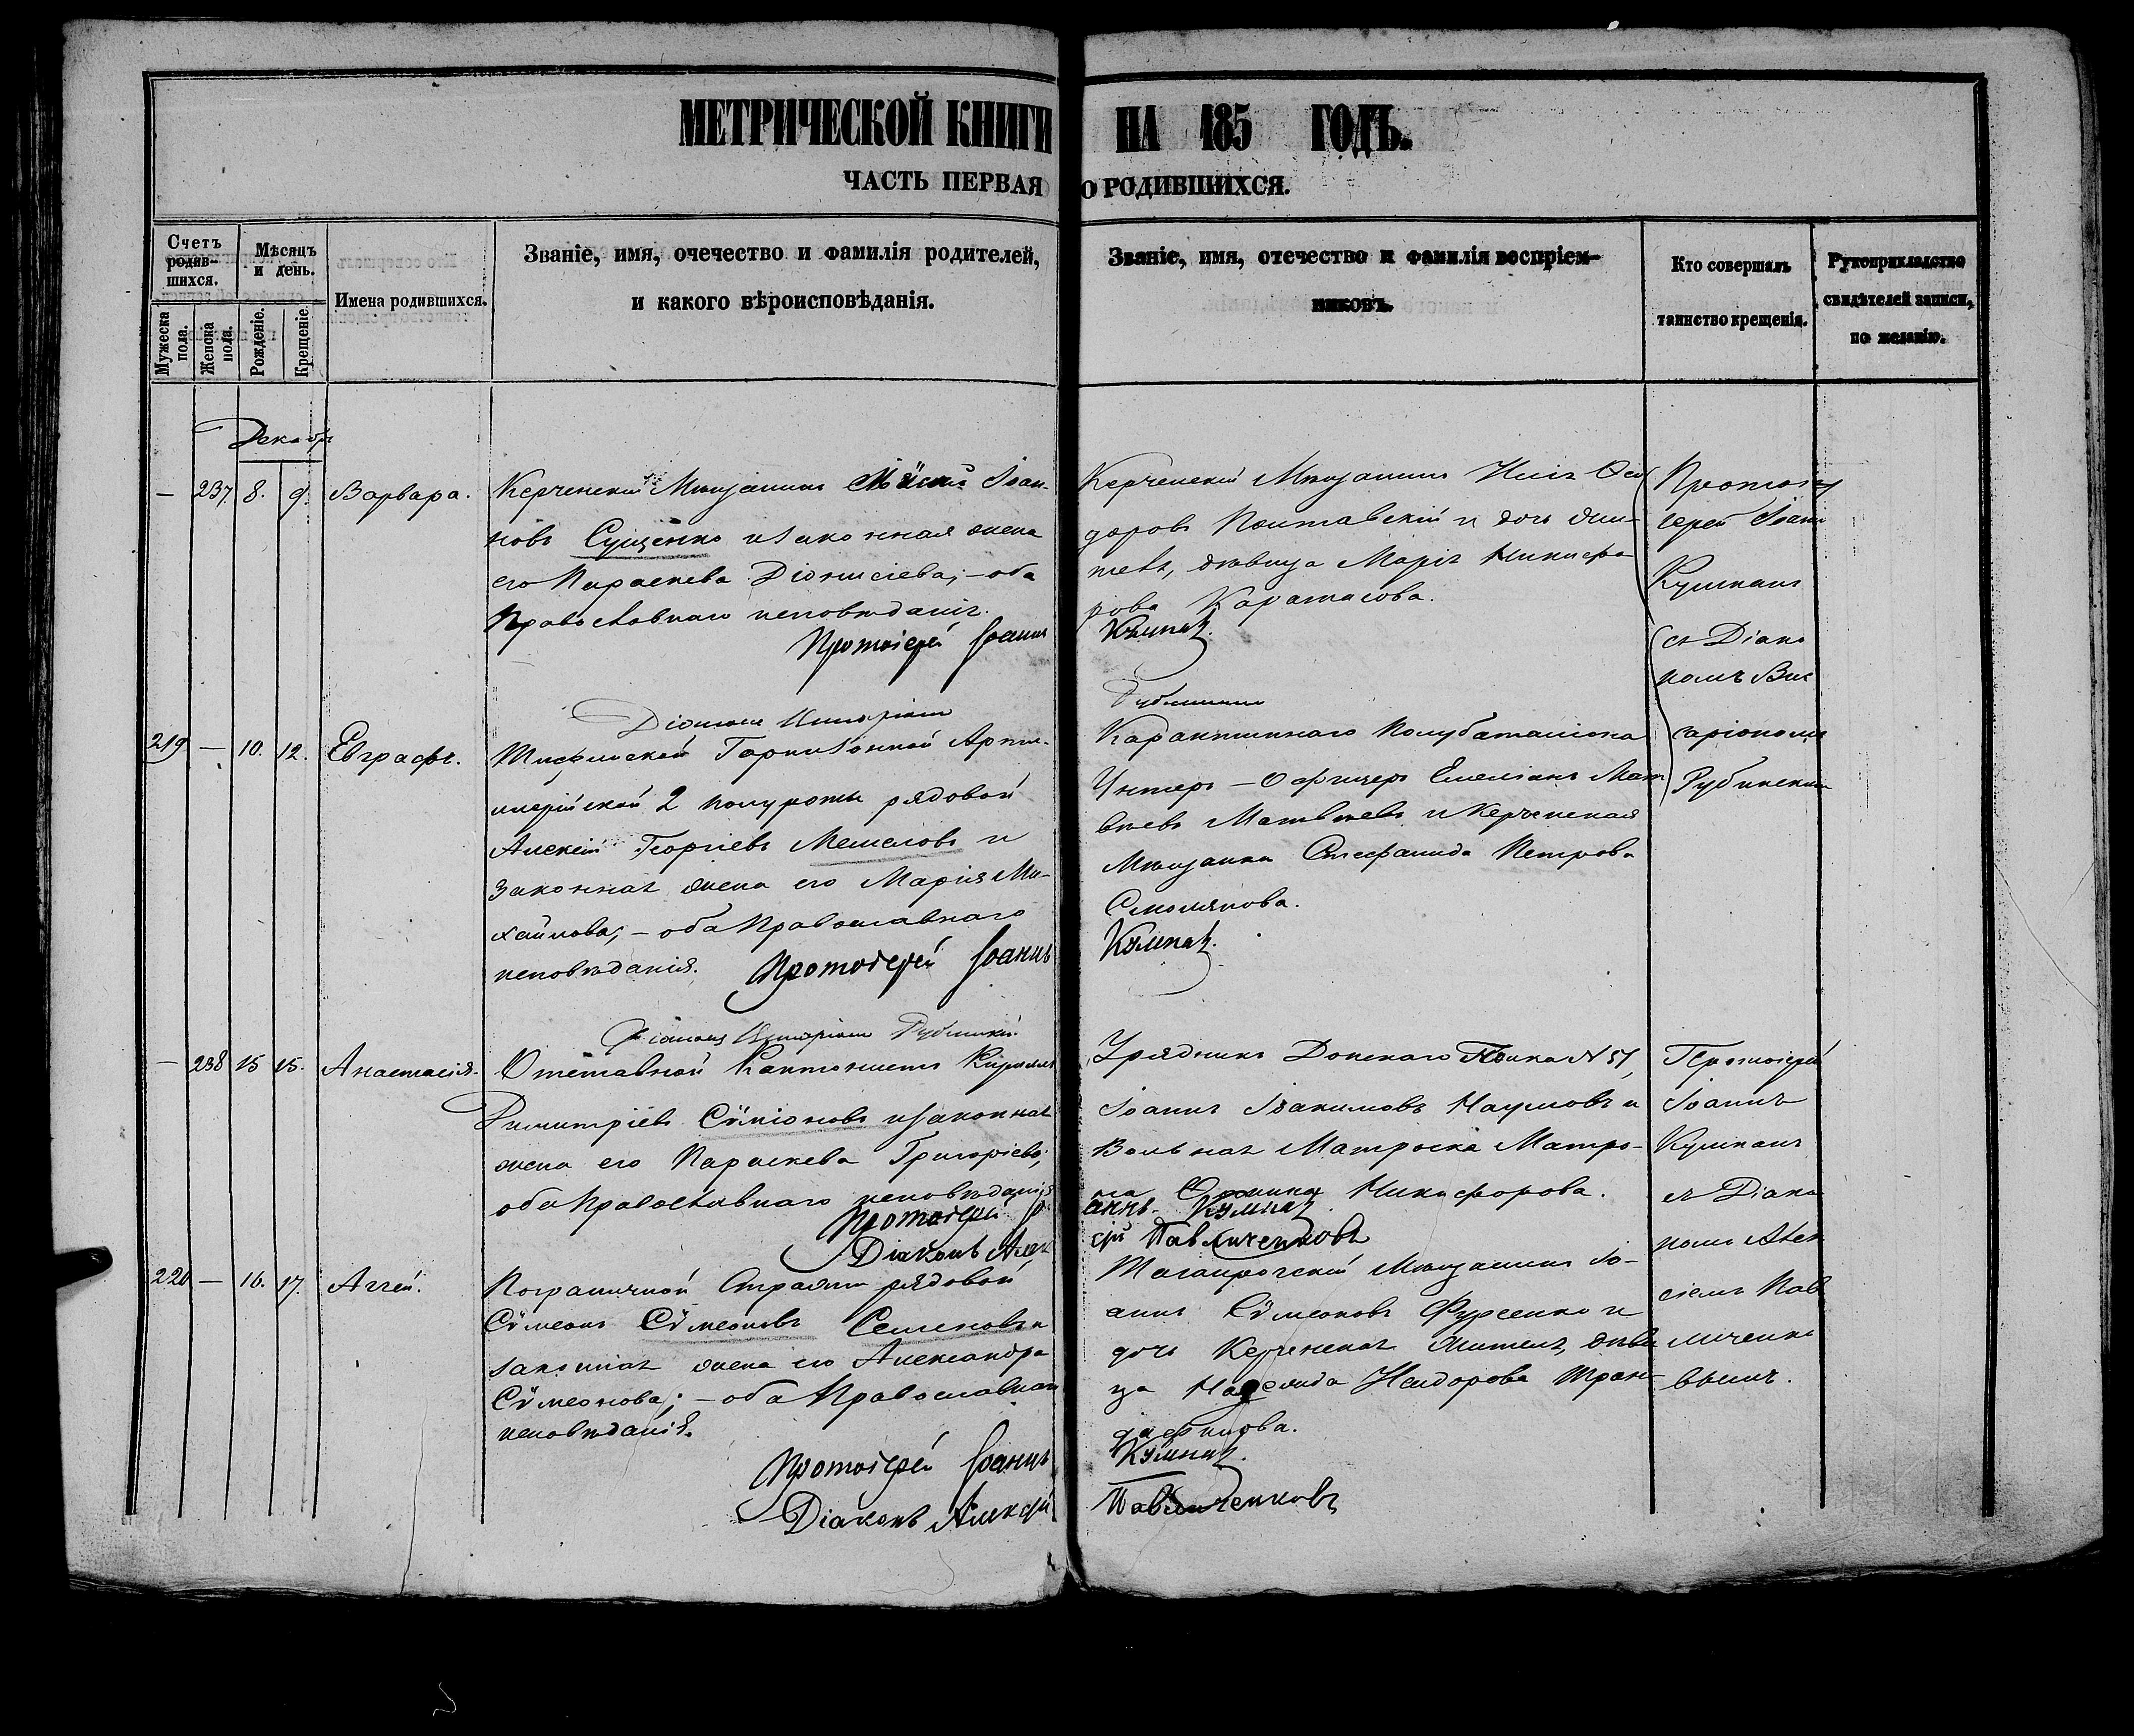 МЕТРИЧЕСКОЙ КНИГИ НА 185 ГОДЪ.
ЧАСТЬ ПЕРВАЯ О РОДИВШИХСЯ.
Счетъ родившихся.
Мужеска пола.
Женска пола.
Мѣсяцъ и день.
Рожденіе.
Крещеніе.
Имена родившихся.
Званіе, имя, очечество и фамилія родителей,
и какого вѣроисповѣданія.
Званіе, имя, отечество и фамилія воспріем-
никовъ.
Кто совершалъ
таинство крещенія.
Рукоприкладство
свидѣтелей записи,
по желанію.
Декабр
— 237 8. 9. Варвара.
Керченскій Мѣщанинъ Іоан-
новъ Сущенко и законная жена
его Параскева Діонисіева; – оба
Православнаго исповѣданія.
Протоіерей Іоаннъ
Керченскій Мѣщанинъ
доровъ Полтавскій и дочь жи-
теля, дѣвица Марія Никифо
рова Каратасова.
Кумпанъ.
Протоіе
ерей Іоанн
Кумпанъ
съ Діако
номъ
219 — 10. 12. Евграфъ.
Діаконъ
Тифлиской Гарнизонной Арти-
лерійской 2 полуроты рядовой
Алексій Георгіевъ Мешеловъ и
Законная жена его Марія Ми-
хайлова; – оба Православнаго
исповѣданія. Протоіерей Іоаннъ
Карантиннаго Полубаталіона
Унтеръ – Офицеръ Емеліанъ Мат
вѣевъ Матвѣевъ и Керченская
Мѣщанка Стефанида Петрова
Смолякова.
Кумпанъ.
— 238 15 15. Анастасія.
Діаконъ
Отставной Кантонистъ Кириллъ
Димитріевъ Сѵміоновъ и законная
жена его Параскева Григоріева;
оба Православнаго исповѣданія
Протоіерей Іо
Діаконъ Алек
Урядникъ Донскаго Полка N 57,
Іоаннъ Іоакимовъ Наумовъ и
Вольная Матроска Матро-
на Никифорова.
аннъ Кумпанъ
сій Павличенковъ
Протоіерей
Іоаннъ
Кумпанъ
съ Діако
номъ Алек
сіемъ Пав
личенко
вымъ.
220 — 16. 17. Аггей.
Пограничной Стражи рядовой
Сѵмеонъ Сѵмеоновъ Семеновъ и
законная жена его Александра
Сѵмеонова; – оба Православнаго
исповѣданія.
Протоіерей Іоаннъ
Діаконъ Алексій
Таганрогскій Мѣщанинъ Іо-
аннъ Сѵмеоновъ Фурсенко и
дочь Керченская жителя, дѣви
ца
Кумпанъ.
Павличенковъ